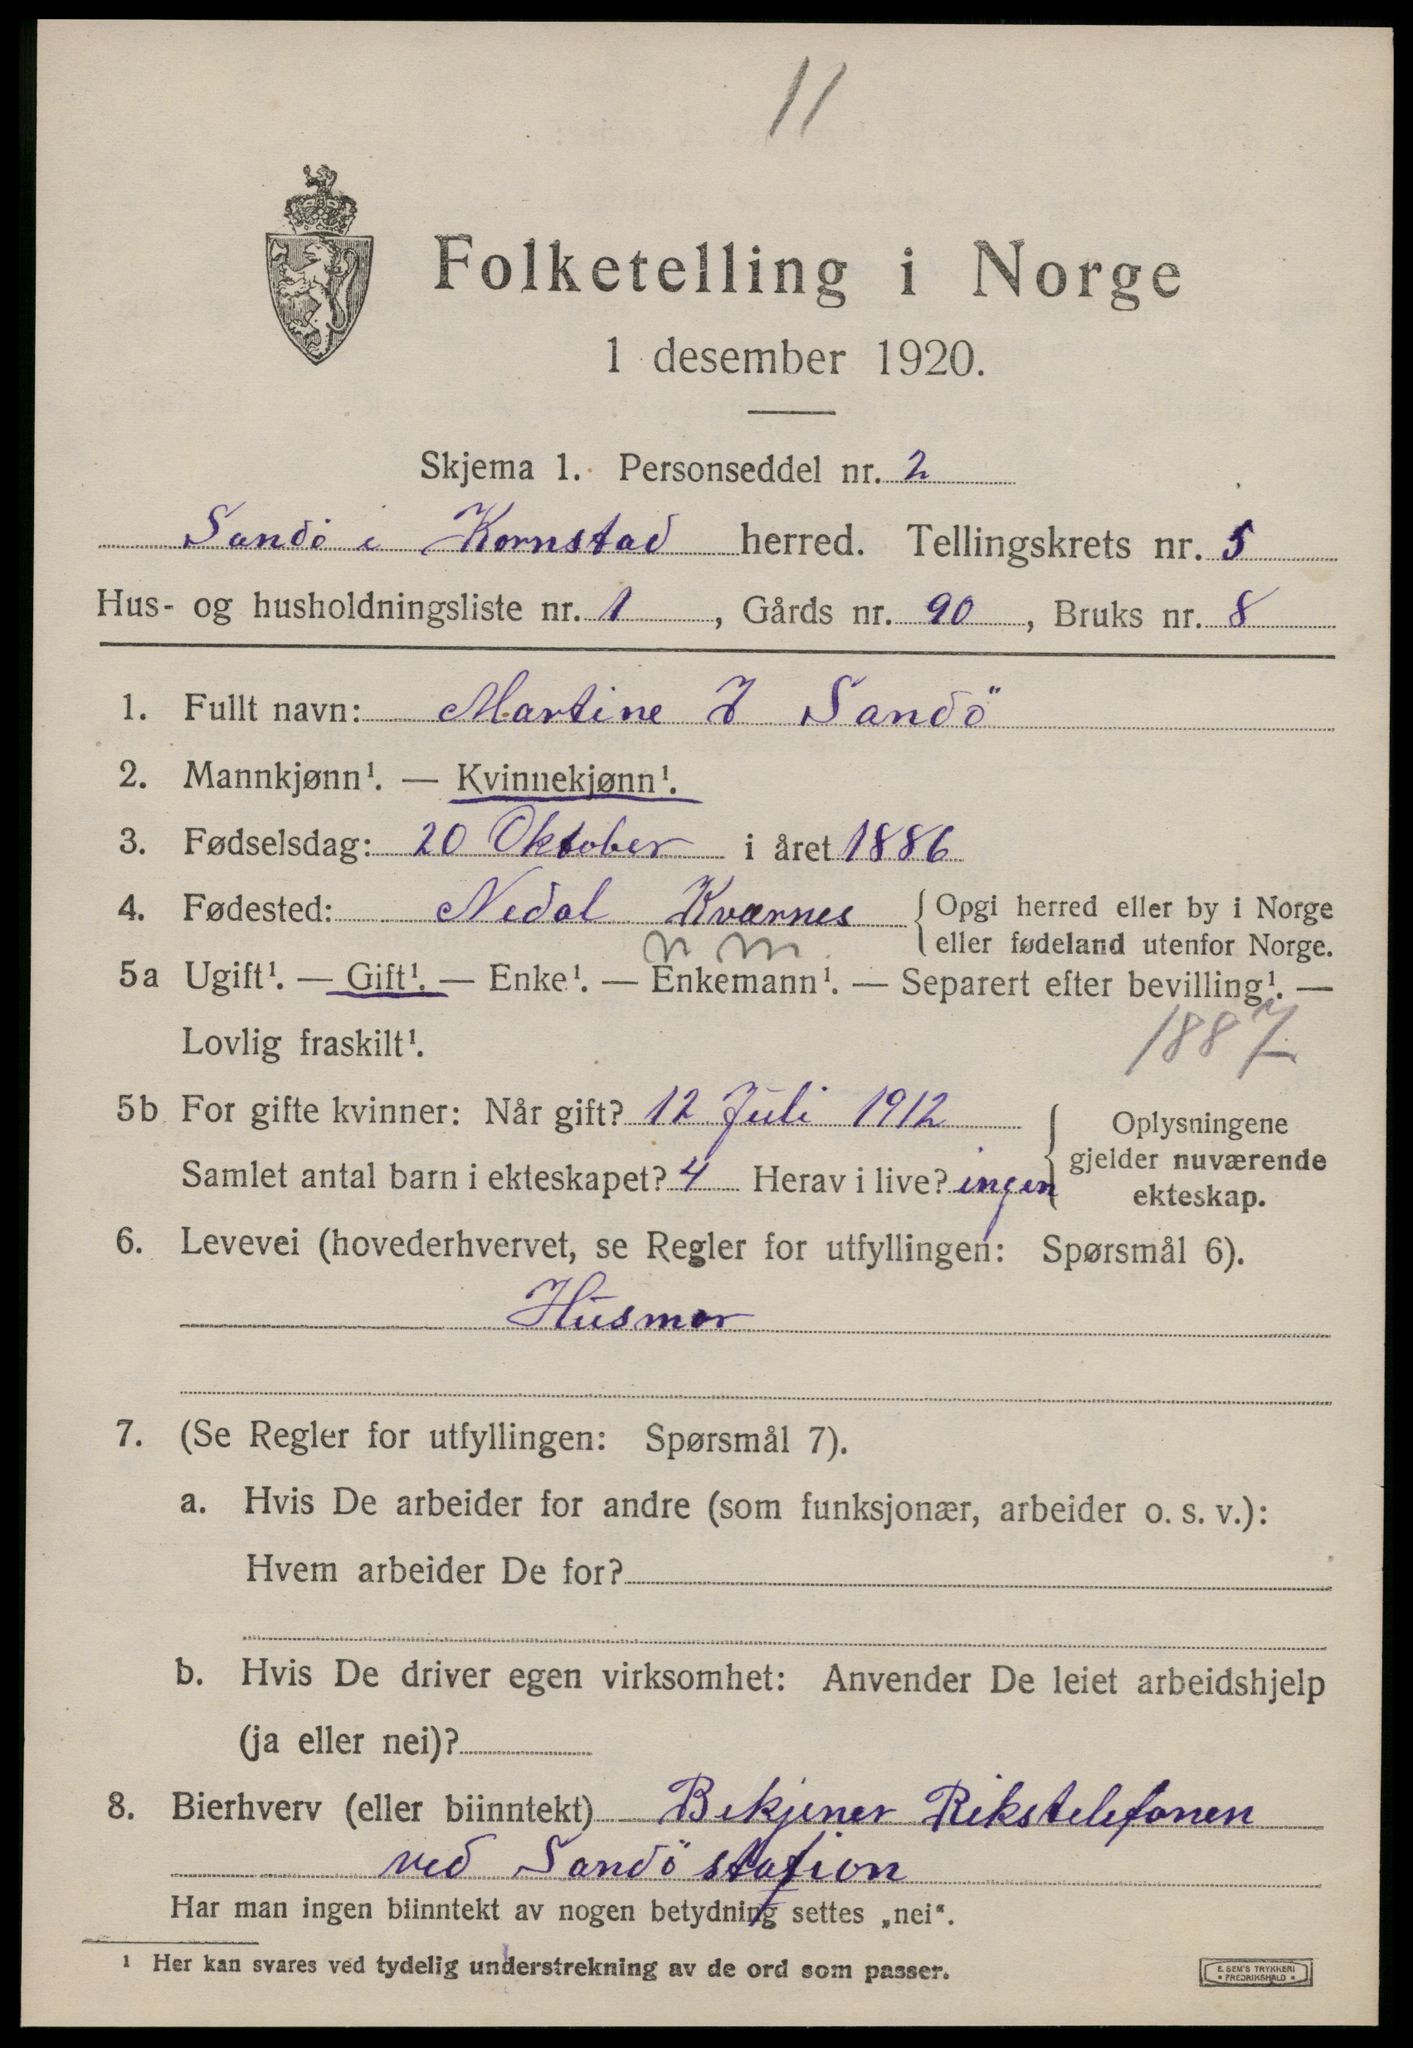 11
Folketelling i Norge
1 desember 1920.
Skjema 1. Personseddel nr. 2
Sandö i Kornstad herred. Tellingskrets nr. 5
Hus- og husholdningsliste nr. 1, Gårds nr. 90, Bruks nr. 8
1. Fullt navn: Martine I Sandö
2. Mannkjønn¹. — Kvinnekjønn¹.
3. Fødselsdag: 20 Oktober i året 1886
4. Fødested: Nedal Kværnes { Opgi herred eller by i Norge
eller fødeland utenfor Norge.
5a Ugift¹. — Gift¹. — Enke¹. — Enkemann¹. — Separert efter bevilling¹. —
Lovlig fraskilt¹. 1887
5b For gifte kvinner: Når gift? 12 Juli 1912
Samlet antal barn i ekteskapet? 4 Herav i live? ingen
Oplysningene
gjelder nuværende
ekteskap.
6. Levevei (hovederhvervet, se Regler for utfyllingen: Spørsmål 6).
Husmor
7. (Se Regler for utfyllingen: Spørsmål 7).
a. Hvis De arbeider for andre (som funksjonær, arbeider o. s. v.):
Hvem arbeider De for?
b. Hvis De driver egen virksomhet: Anvender De leiet arbeidshjelp
(ja eller nei)?
8. Bierhverv (eller biinntekt) Bekjener Rikstelefonen
ved Sandö station
Har man ingen biinntekt av nogen betydning settes „nei“.
¹ Her kan svares ved tydelig understrekning av de ord som passer.
E. SEM'S TRYKKERI
• FREDRIKSHALD •